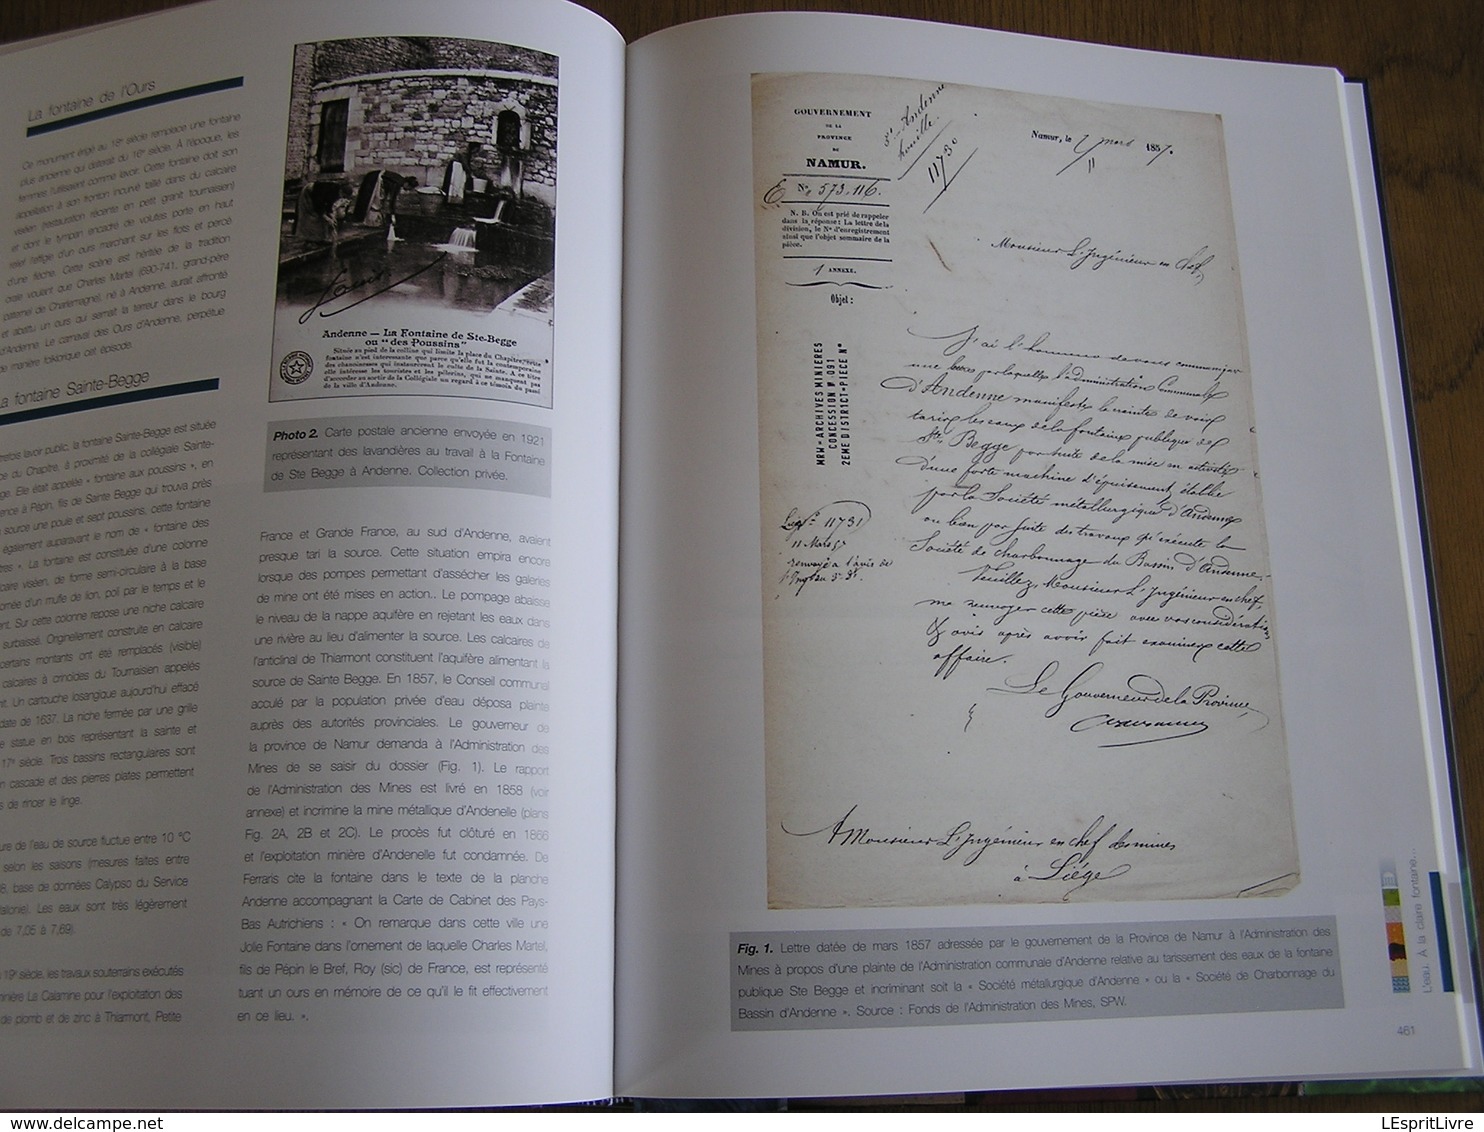 La fontaine de l'Ours
Ce monument érigé au 18e siècle remplace une fontaine
plus ancienne qui daterait du 16e siècle. À l'époque, les
femmes l'utilisaient comme lavoir. Cette fontaine doit son
appellation à son fronton incurvé taillé dans du calcaire
viséen (restauration récente en petit granit tournaisien)
et dont le tympan encadré de volutes porte en haut
relief l'effigie d'un ours marchant sur les flots et percé
d'une flèche. Cette scène est héritée de la tradition
orale voulant que Charles Martel (690-741, grand-père
paternel de Charlemagne), né à Andenne, aurait affronté
et abattu un ours qui semait la terreur dans le bourg
d'Andenne. Le carnaval des Ours d'Andenne, perpétue
de manière folklorique cet épisode.
La fontaine Sainte-Begge
trefois lavoir public, la fontaine Sainte-Begge est située
ce du Chapitre, à proximité de la collégiale Sainte-
gge. Elle était appelée « fontaine aux poussins », en
ence à Pépin, fils de Sainte Begge qui trouva près
source une poule et sept poussins, cette fontaine
également auparavant le nom de « fontaine des
tres ». La fontaine est constituée d'une colonne
caire viséen, de forme semi-circulaire à la base
ornée d'un mufle de lion, poli par le temps et le
ent. Sur cette colonne repose une niche calcaire
surbaissé. Originellement construite en calcaire
certains montants ont été remplacés (visible)
calcaires à crinoïdes du Tournaisien appelés
nt. Un cartouche losangique aujourd'hui effacé
date de 1637. La niche fermée par une grille
e statue en bois représentant la sainte et
17e siècle. Trois bassins rectangulaires sont
n cascade et des pierres plates permettent
s de rincer le linge.
ure de l'eau de source fluctue entre 10 °C
selon les saisons (mesures faites entre
8, base de données Calypso du Service
allonie). Les eaux sont très légèrement
de 7,05 à 7,69).
19e siècle, les travaux souterrains exécutés
inière La Calamine pour l'exploitation des
de plomb et de zinc à Thiarmont, Petite
Andenne — La Fontaine de Ste-Begge
ou "des Poussins"
Située au pied de la colline qui limite la place du Chapitre, cette
fontaine n'est intéressante que parce qu'elle fut la contemporaine
des chanoinesses qui instaurèrent le culte de la Sainte. A ce titre
elle intéresse les touristes et les pèlerins, qui ne manquent pas
d'accorder au sortir de la Collégiale un regard à ce témoin du passé
de la ville d'Andenne.
Photo 2. Carte postale ancienne envoyée en 1921
représentant des lavandières au travail à la Fontaine
de Ste Begge à Andenne. Collection privée.
France et Grande France, au sud d'Andenne, avaient
presque tari la source. Cette situation empira encore
lorsque des pompes permettant d'assécher les galeries
de mine ont été mises en action.. Le pompage abaisse
le niveau de la nappe aquifère en rejetant les eaux dans
une rivière au lieu d'alimenter la source. Les calcaires de
l'anticlinal de Thiarmont constituent l'aquifère alimentant la
source de Sainte Begge. En 1857, le Conseil communal
acculé par la population privée d'eau déposa plainte
auprès des autorités provinciales. Le gouverneur de
la province de Namur demanda à l'Administration des
Mines de se saisir du dossier (Fig. 1). Le rapport
de l'Administration des Mines est livré en 1858 (voir
annexe) et incrimine la mine métallique d'Andenelle (plans
Fig. 2A, 2B et 2C). Le procès fut clôturé en 1866
et l'exploitation minière d'Andenelle fut condamnée. De
Ferraris cite la fontaine dans le texte de la planche
Andenne accompagnant la Carte de Cabinet des Pays-
Bas Autrichiens : « On remarque dans cette ville une
Jolie Fontaine dans l'ornement de laquelle Charles Martel,
fils de Pépin le Bref, Roy (sic) de France, est représenté
tuant un ours en mémoire de ce qu'il le fit effectivement
en ce lieu. ».
GOUVERNEMENT
DE LA
PROVINCE
DE
NAMUR.
Andenne
houille.
11730
Namur, le 7 mars 1857.
E No 573.116.
N. B. On est prié de rappeler
dans la réponse : La lettre de la
division, le No d'enregistrement
ainsi que l'objet sommaire de la
pièce.
1 ANNEXE.
Objet :
MRW-ARCHIVES MINIERES
CONCESSION N°091
2EME DISTRICT-PIECE N°
Monsieur L'Ingénieur en chef,
J'ai l'honneur de vous communiquer
une lettre par laquelle l'administration Communale
d'Andenne manifeste la crainte de voir
tarir les eaux de la fontaine publique de
Ste Begge par suite de la mise en activité
d'une forte machine d'épuisement, établie
par la Société métallurgique d'Andenne
ou bien par suite des travaux qu'exécute la
Société de charbonnage du Bassin d'Andenne.
Veuillez, Monsieur L'Ingénieur en chef,
me renvoyer cette pièce avec vos considérations
& avis après avoir fait examiner cette
affaire.
Le Gouverneur de la Province,
11731
11 Mars 57
renvoyé à l'avis de
A Monsieur L'Ingénieur en chef des mines
à Liége
Fig. 1. Lettre datée de mars 1857 adressée par le gouvernement de la Province de Namur à l'Administration des
Mines à propos d'une plainte de l'Administration communale d'Andenne relative au tarissement des eaux de la fontaine
publique Ste Begge et incriminant soit la « Société métallurgique d'Andenne » ou la « Société de Charbonnage du
Bassin d'Andenne ». Source : Fonds de l'Administration des Mines, SPW.
L'eau. À la claire fontaine...
461
LEspritLivre